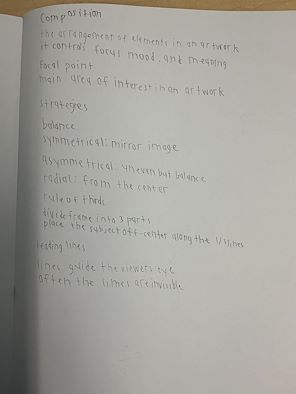 Composition
the arrangement of elements in an artwork
it controls focus mood, and meaning
focal point
main area of interest in an artwork
strategies
balance
symmetrical: mirror image
asymmetrical: uneven but balance
radial: from the center
rule of thirds
divide frame into 3 parts
place the subject off-center along the 1/3 lines
leading lines
lines guide the viewers eye
often the lines are invisible